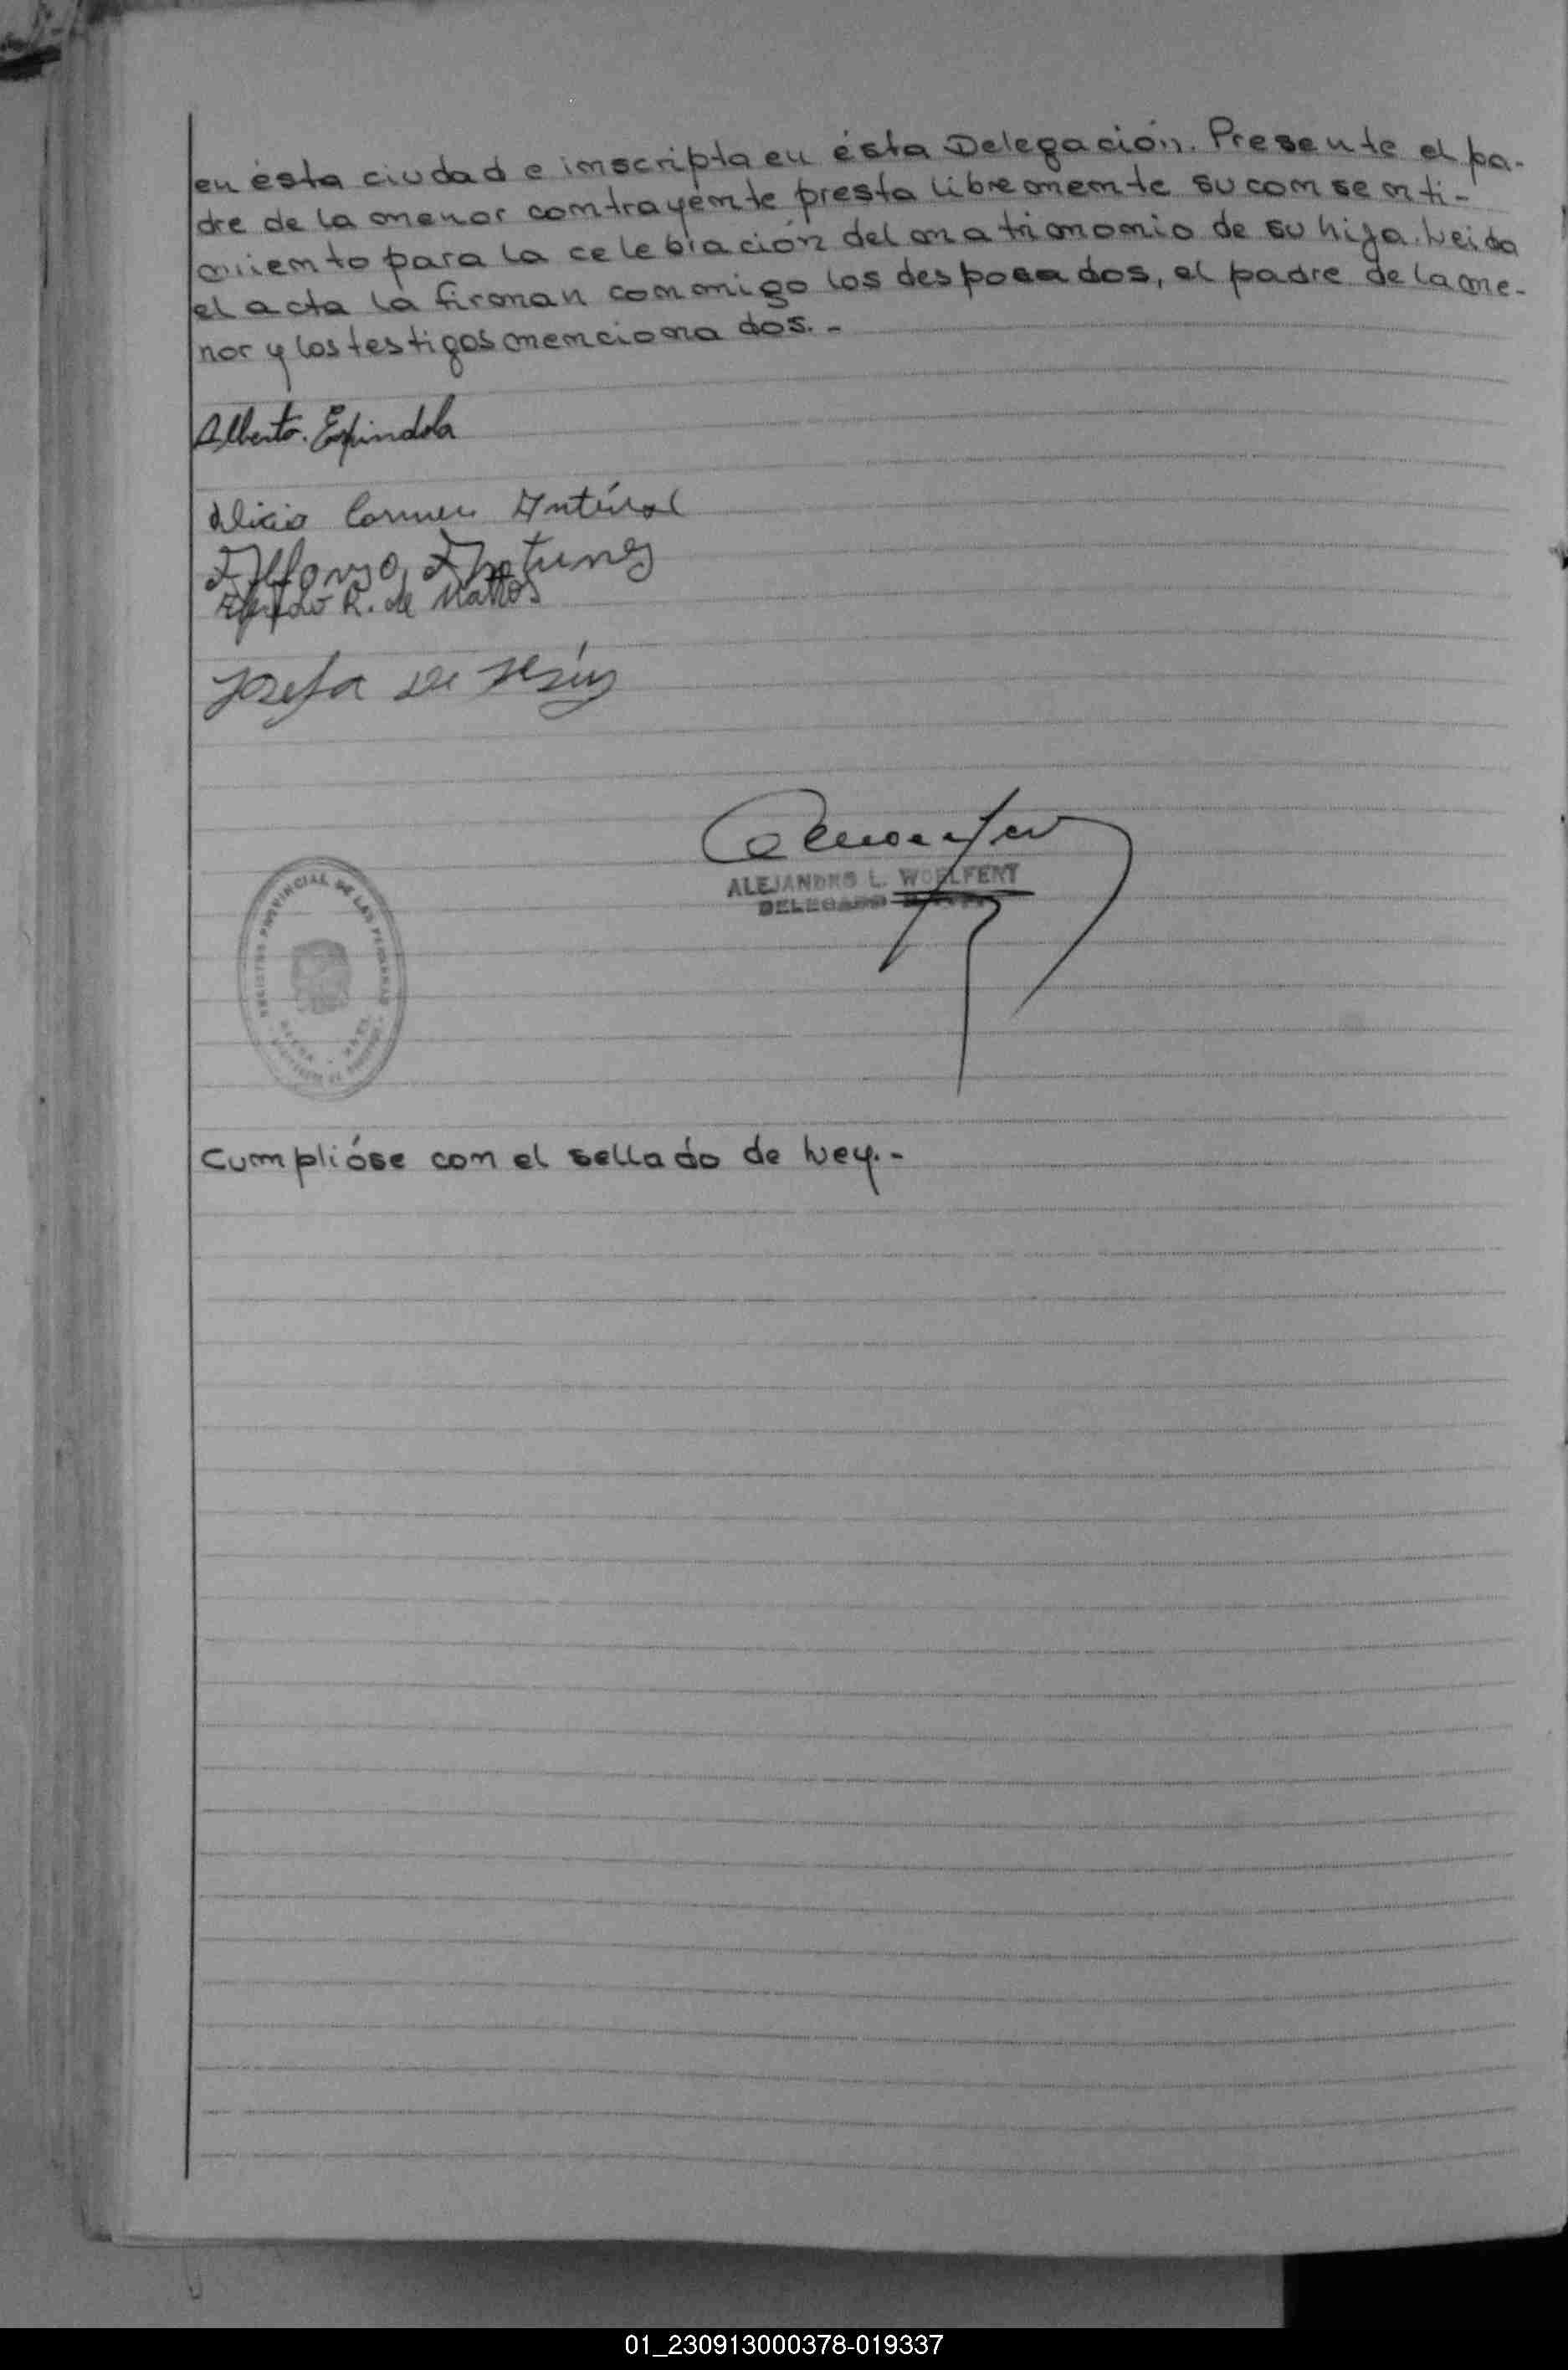 en ésta ciudad e inscripta en ésta Delegación. Presente el pa-
dre de la menor contrayente presta libremente su consenti-
miento para la celebración del matrimonio de su hija. Leida
el acta la firman conmigo los desposados, el padre de la me-
nor y los testigos mencionados.-
Alberto. Espindola
Alicia Carmen
Alfonso
R. de Mattos
Josefa De Jesús
ALEJANDRO L. WOELFERT
DELEGADO
REGISTRO PROVINCIAL DE LAS PERSONAS
Cumplióse con el sellado de Ley.-
01_230913000378-019337